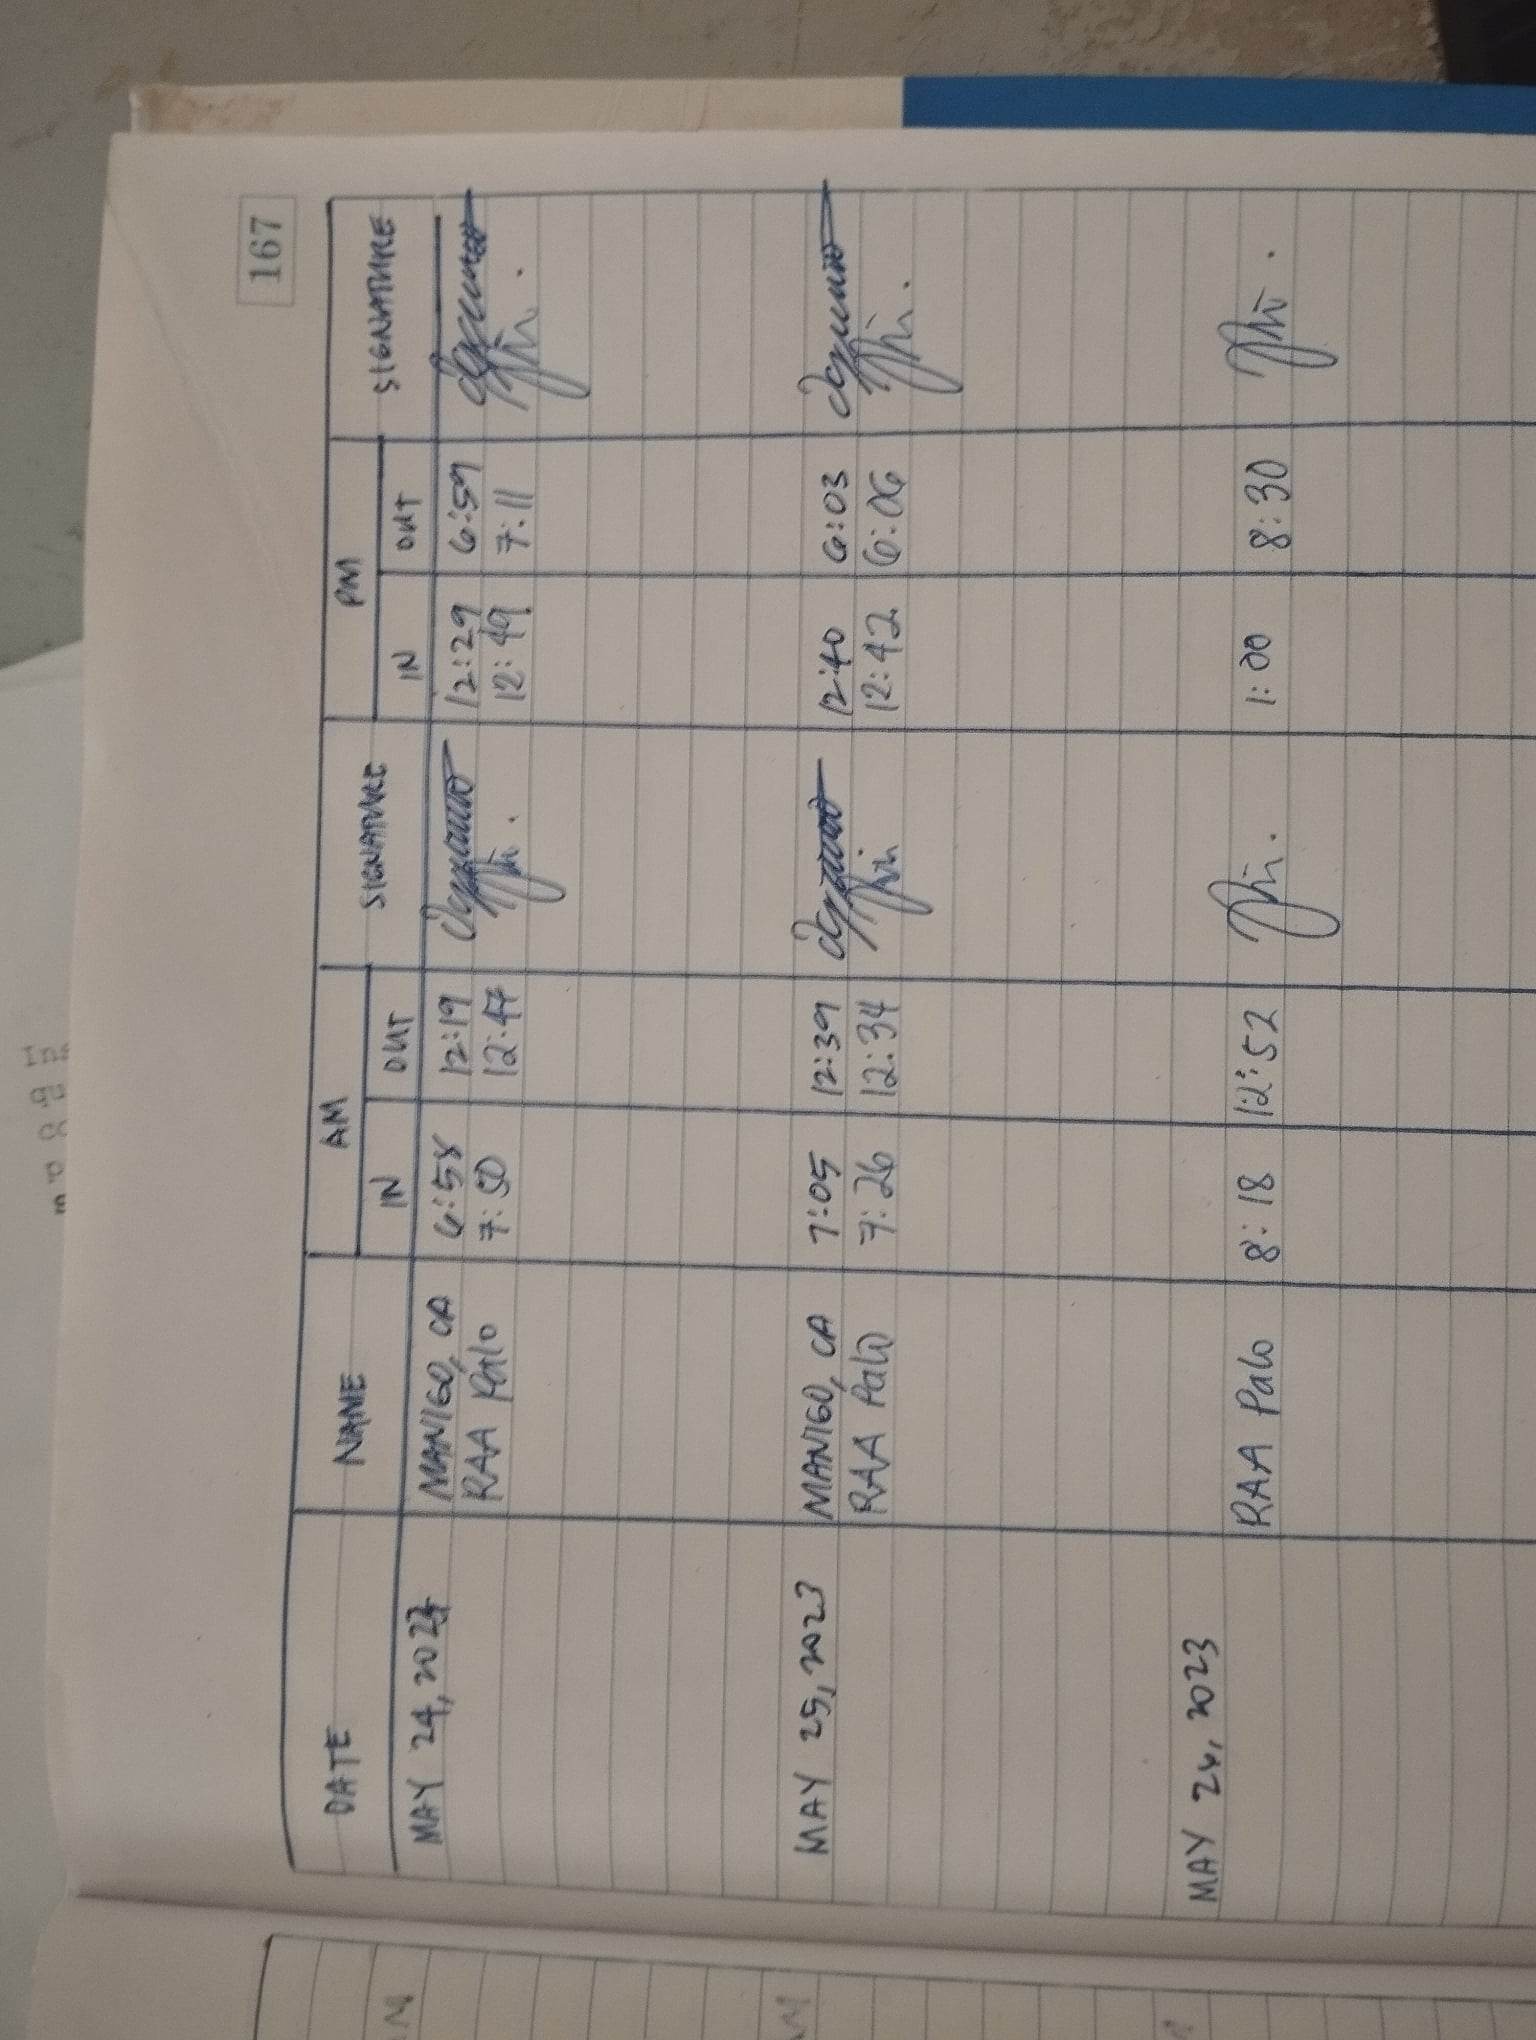 167
DATE NAME AM SIGNATURE PM SIGNATURE
IN OUT IN OUT
MAY 24, 2023 MANIGO, CA 6:58 12:19 12:29 6:59
RAA Palo 7:50 12:47 12:49 7:11
MAY 25, 2023 MANIGO, CA 7:05 12:39 12:40 6:03
RAA Palo 7:26 12:34 12:42 6:06
MAY 26, 2023
RAA Palo 8:18 12:52 1:00 8:30